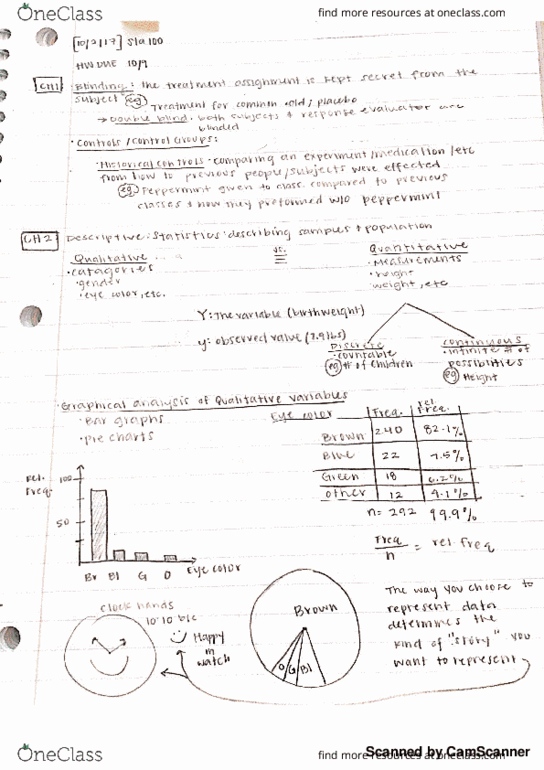 OneClass
find more resources at oneclass.com
[10/2/17] Sta 100
HW DUE 10/9
CH1 Blinding: the treatment assignment is kept secret from the
subject eg Treatment for common cold / placebo
→ Double blind: both subjects & response evaluator are
blinded
· Controls / Control Groups:
· Historical controls · comparing an experiment/medication/etc
from how to previous people/subjects were effected
eg Peppermint given to class compared to previous
classes & how they preformed w/o peppermint
CH 2 Descriptive Statistics: describing samples & population
Qualitative vs. Quantitative
· catagories · Measurements
· gender · height
· eye color, etc. weight, etc
Y: The variable (birthweight)
y: observed value (7.9 lbs)
Discrete continuous
· countable · infinite # of
eg # of children possibilities
eg Height
Graphical analysis of Qualitative variables
· Bar graphs
· pie charts
Eye color Freq. rel. Freq.
Brown 240 82.1%
Blue 22 7.5%
Green 18 6.2%
other 12 4.1%
n= 292 99.9%
Freq / n = rel freq
rel. Freq
100
50
Br Bl G O Eye color
clock hands
10:10 b/c
Happy
in
watch
Brown
O G Bl
The way you choose to
represent data
determines the
kind of "story" you
want to represent
OneClass
find more resources at oneclass.com
Scanned by CamScanner